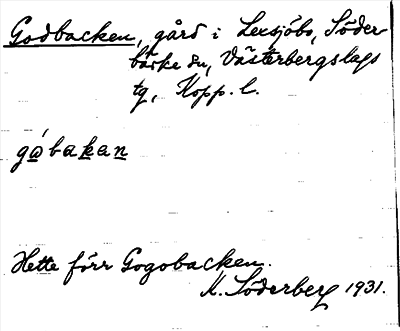 Godbacken, gård i Lexsjöbo, Söder
bärke sn, Västerbergslags
tg, Kopp. l.
gåbakan
Hette förr Gogobacken.
M. Söderberg 1931.